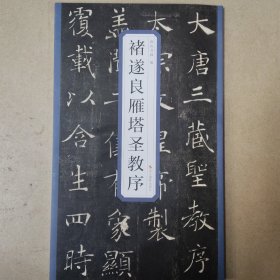 褚遂良雁塔圣教序
大唐三藏聖教序
太宗文皇帝製
蓋聞二儀有象顯
覆載以含生四時